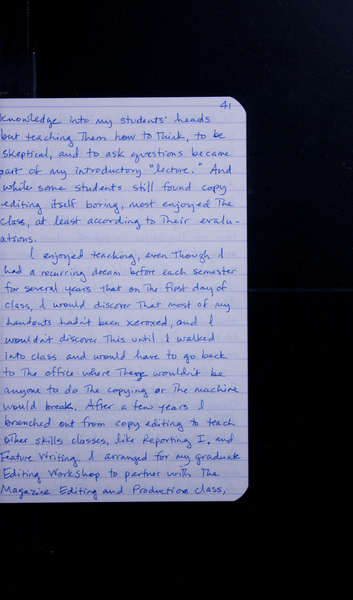 41
knowledge into my students' heads
but teaching them how to think, to be
skeptical, and to ask questions became
part of my introductory "lecture." And
while some students still found copy
editing itself boring, most enjoyed the
class, at least according to their evalu-
ations.
I enjoyed teaching, even though I
had a recurring dream before each semester
for several years that on the first day of
class, I would discover that most of my
handouts hadn't been xeroxed, and I
wouldn't discover this until I walked
into class and would have to go back
to the office where there wouldn't be
anyone to do the copying or the machine
would break. After a few years I
branched out from copy editing to teach
other skills classes, like Reporting I, and
Feature Writing. I arranged for my graduate
Editing Workshop to partner with the
Magazine Editing and Production class,